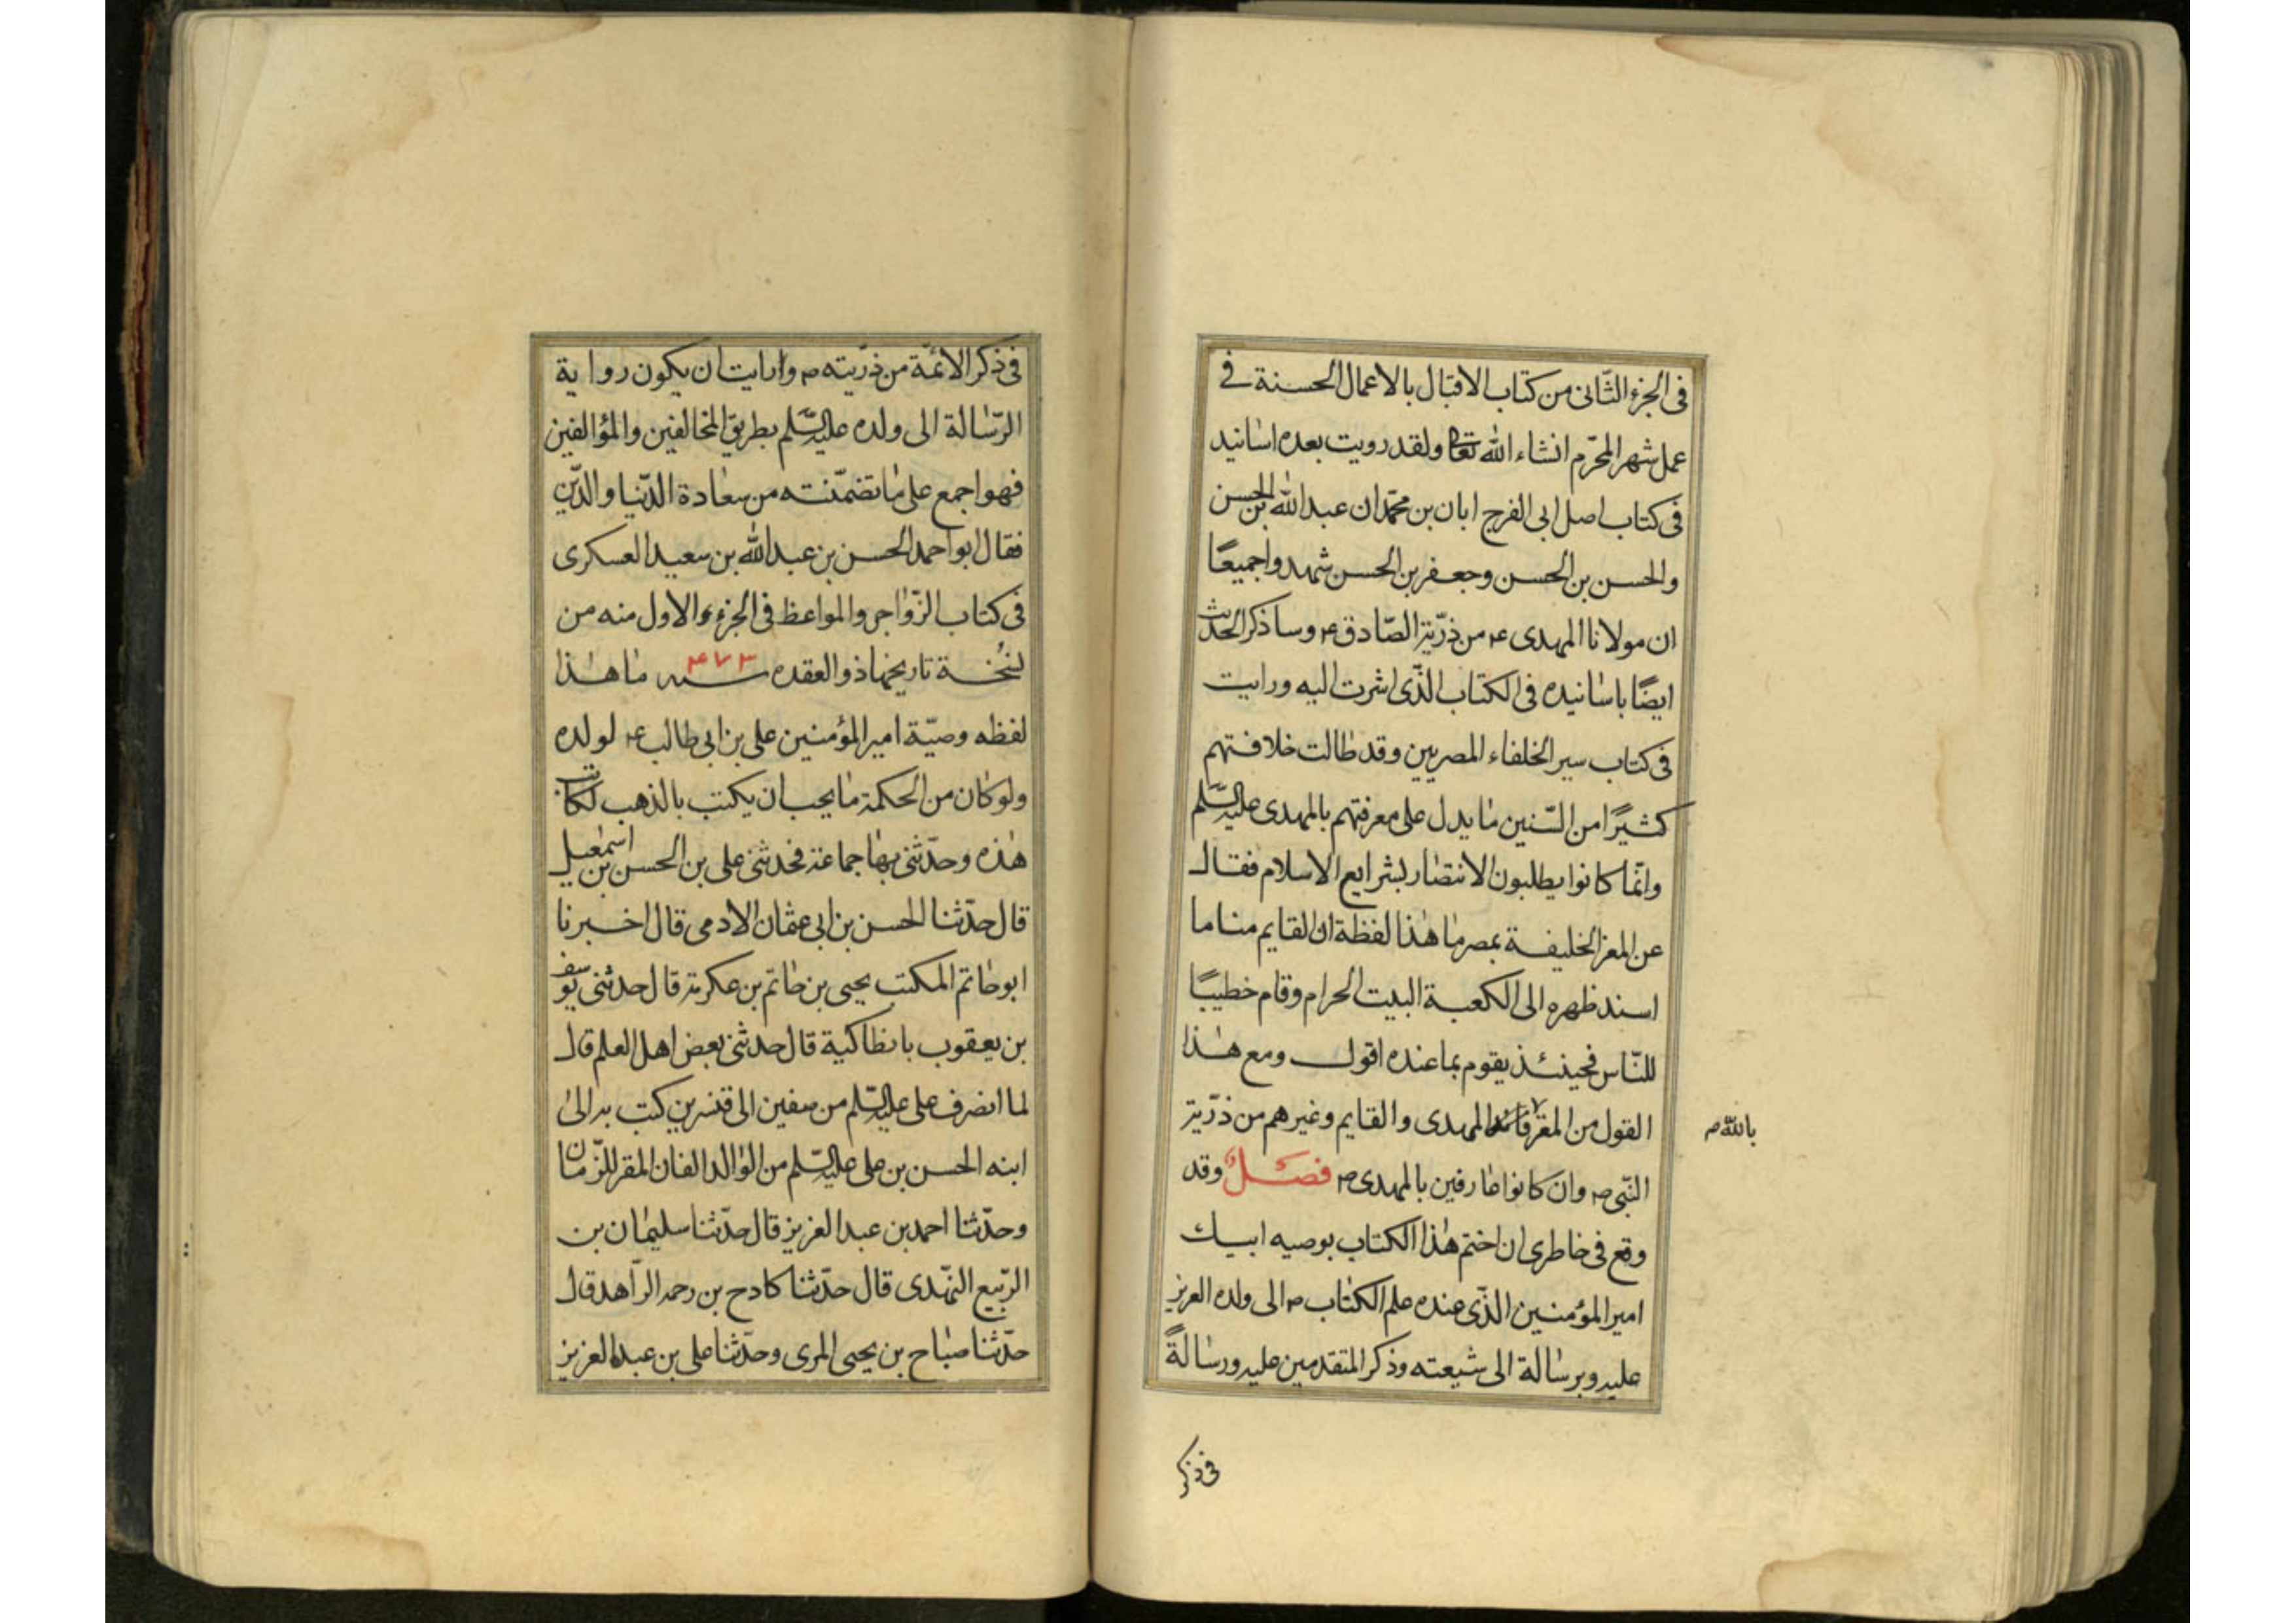 فى الجزء الثّانى من كتاب الاقبال بالاعمال الحسنة فى
عمل شهر المحرّم انشاء الله تعا ولقد رويت بعده اسانيد
فى كتاب اصل ابى الفرج ابان بن محمّد ان عبد الله بن الحسن
والحسن بن الحسن وجعفر بن الحسن شهدوا جميعًا
ان مولانا المهدى ع من ذرّية الصّادق ع وساذكر الحديث
ايضًا باسانيده فى الكتاب الّذى اشرت اليه ورايت
فى كتاب سير الخلفاء المصريين وقد طالت خلافتهم
كثيرًا من السّنين ما يدل على معرفتهم بالمهدى عليه السّلم
وانّما كانوا يطلبون الانتصار لشرايع الاسلام فقال
عن المعز الخليفة بمصر ما هذا لفظة ان القايم منا ما
اسند ظهره الى الكعبة البيت الحرام وقام خطيبًا
للنّاس فحينئذ يقوم بما عنده اقول ومع هذا
القول من المعز المهدى والقايم وغيرهم من ذرّية
بالله م
النّبى ص وان كانوا عارفين بالمهدى ص فصل وقد
وقع فى خاطرى ان اختم هذا الكتاب بوصيه ابيك
امير المؤمنين الّذى عنده علم الكتاب ص الى ولده العزيز
عليه وبرسالة الى شيعته وذكر المتقدمين عليه ورسالةً
فى ذكر
فى ذكر الائمّة من ذرّيته م وارايت ان يكون رواية
الرّسالة الى ولده عليه السّلم بطريق المخالفين والمؤالفين
فهو اجمع على ما تضمّنته من سعادة الدّنيا والدّين
فقال ابو احمد الحسن بن عبد الله بن سعيد العسكرى
فى كتاب الزّواجر والمواعظ فى الجزء الاول منه من
نسخة تاريخها ذو العقده سنه ۴۷۳ ما هذا
لفظه وصيّة امير المؤمنين على بن ابى طالب ع لولده
ولو كان من الحكمة ما يجب ان يكتب بالذهب لكانت
هذه وحدّثنى بها جماعة فحدثنى على بن الحسن بن اسمعيل
قال حدّثنا الحسن بن ابى عثمان الادمى قال اخبرنا
ابو حاتم المكتب يحيى بن حاتم بن عكرمة قال حدثنى يوسف
بن يعقوب بانطاكية قال حدثنى بعض اهل العلم قال
لما انصرف على عليه السّلم من صفين الى قنسرين كتب به الى
ابنه الحسن بن على عليه السّلم من الوالد الفان المقر للزّمان
وحدّثنا احمد بن عبد العزيز قال حدّثنا سليمان بن
الرّبيع النّهدى قال حدّثنا كادح بن رحمه الرّاهد قال
حدّثنا صباح بن يحيى المرى وحدّثنا على بن عبد العزيز